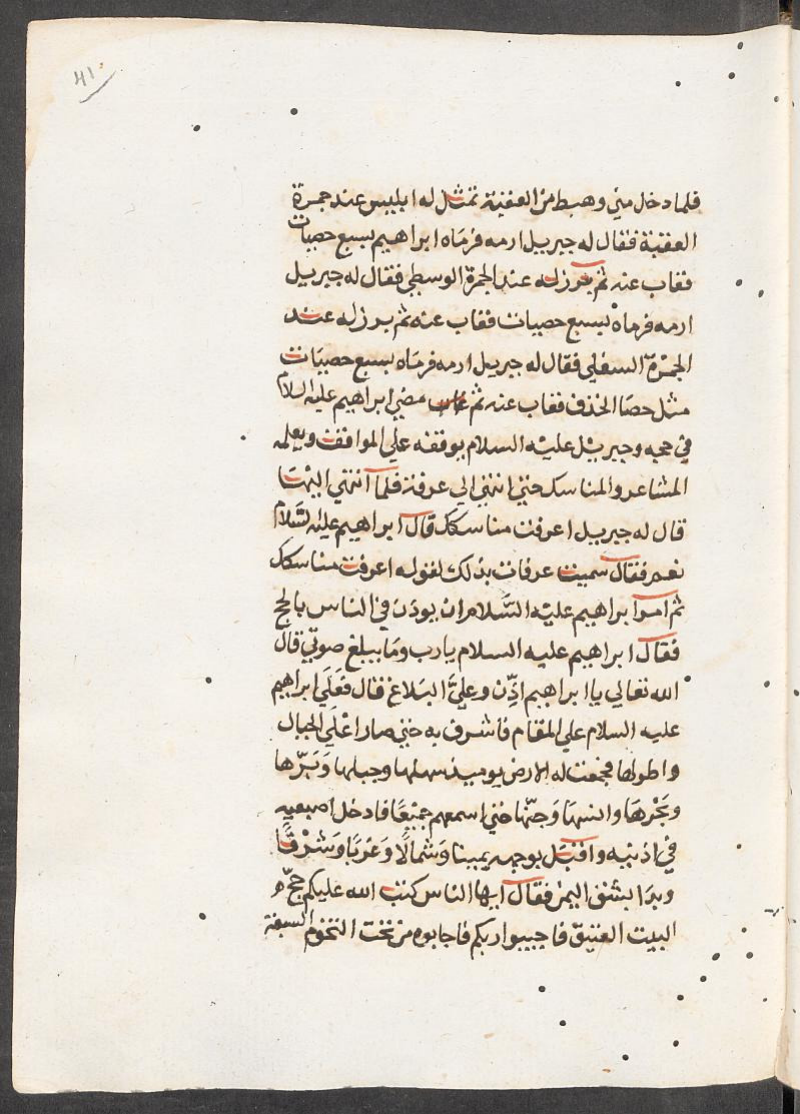 41
فلما دخل مني وهبط من العقبة تمثل له ابليس عند جمرة
العقبة فقال له جبريل ارمه فرماه ابراهيم بسبع حصيات
فغاب عنه ثم برز له عند الجمرة الوسطي فقال له جبريل
ارمه فرماه بسبع حصيات فغاب عنه ثم برز له عند
الجمرة السفلي فقال له جبريل ارمه فرماه بسبع حصيات
مثل حصا الخذف فغاب عنه ثم مضي ابراهيم عليه السلام
في حجه وجبريل عليه السلام يوقفه علي المواقف ويعلمه
المشاعر والمناسك حتي انتهي الي عرفة فلما انتهي اليها
قال له جبريل اعرفت مناسكك قال ابراهيم عليه السلام
نعم فقال سميت عرفات بذلك لقوله اعرفت مناسكك
ثم امر ابراهيم عليه السلام ان يوذن في الناس بالحج
فقال ابراهيم عليه السلام يارب وما يبلغ صوتي قال
الله تعالي يا ابراهيم اذن وعلي البلاغ قال فعلي ابراهيم
عليه السلام علي المقام فاشرف به حتي صار اعلي الجبال
واطولها فجمعت له الارض يوميذ سهلها وجبلها وبرها
وبحرها وانسها وجنها حتي اسمعهم جميعا فادخل اصبعيه
في اذنيه واقبل بوجهه يمينا وشمالا وغربا وشرقا
وبدا بشق اليمن فقال ايها الناس كتب الله عليكم حج
البيت العتيق فاجيبوا ربكم فاجابوه من تحت التخوم السبعة